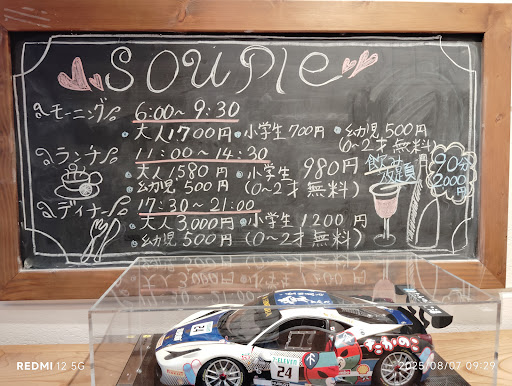 SOUPLE
モーニング
6:00～9:30
大人1,700円 小学生700円 幼児500円
(0～2才無料)
ランチ
11:00～14:30
大人1,580円 小学生 980円
幼児500円 (0～2才無料)
飲み放題
90分
2000円
ディナー
17:30～21:00
大人3,000円 小学生1200円
幼児500円 (0～2才無料)
24
たかのこ
24
REDMI 12 5G
2025/08/07 09:29